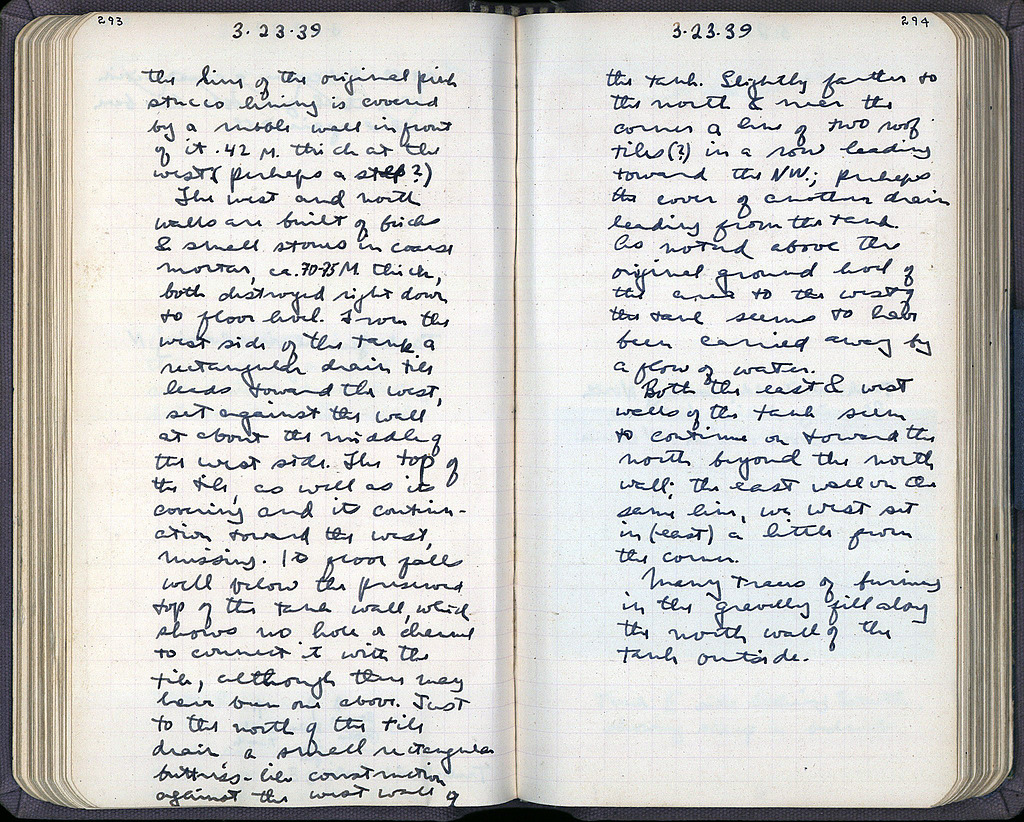 293
3-23-39
the line of the original pink
stucco lining is covered
by a rubble wall in front
of it .42 M. thick at the
west (perhaps a step?)
The west and north
walls are built of bricks
& small stones in coarse
mortar, ca. .70-75 M thick,
both destroyed right down
to floor level. From the
west side of the tank a
rectangular drain tile
leads toward the west,
set against the wall
at about the middle of
the west side. The top of
the tile, as well as its
covering and its continu-
ation toward the west,
missing. Its floor falls
well below the preserved
top of the tank wall, which
shows no hole or channel
to connect it with the
tile, although there may
have been one above. Just
to the north of the tile
drain a small rectangular
buttress-like construction
against the west wall of
294
3-23-39
the tank. Slightly farther to
the north & near the
corner a line of two roof
tiles (?) in a row leading
toward the NW.; perhaps
the cover of another drain
leading from the tank.
As noted above the
original ground level of
the area to the west of
the tank seems to have
been carried away by
a flow of water.
Both the east & west
walls of the tank seem
to continue on toward the
north beyond the north
wall; the east wall on the
same line, the west set
in (east) a little from
the corner.
Many traces of burning
in the gravelly fill along
the north wall of the
tank outside.